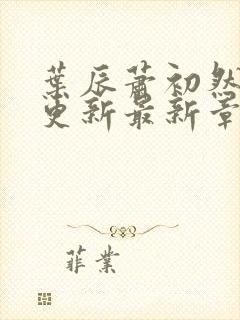 葉辰蕭初然
更新最新章
菲業